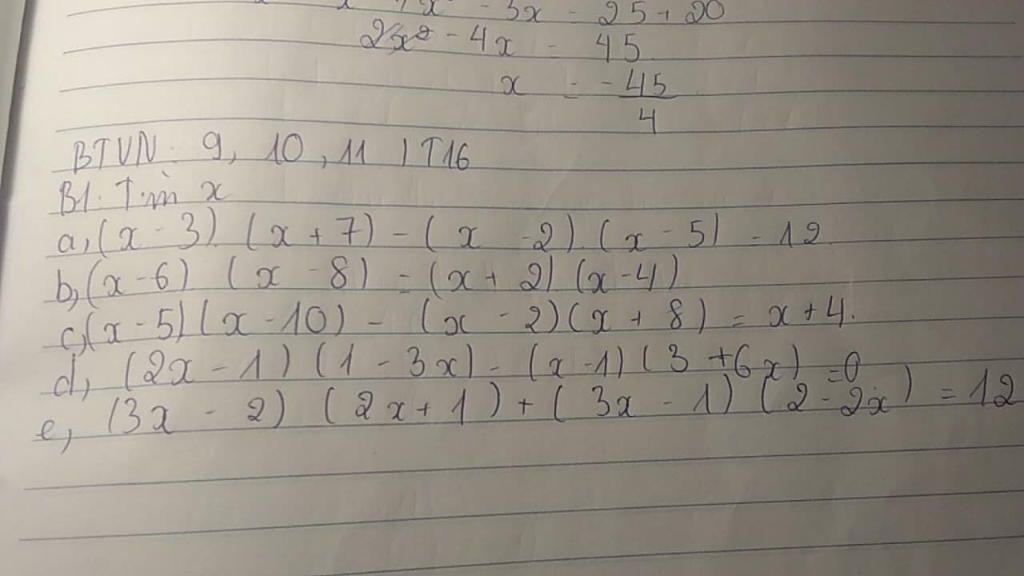 - 3x - 25 + 20
2x² - 4x - 45
x = -45/4
BTVN: 9, 10, 11 | T16
B1: Tìm x
a, (x - 3). (x + 7) - (x - 2). (x - 5) = 12
b, (x - 6) (x - 8) = (x + 2) (x - 4)
c, (x - 5) (x - 10) - (x - 2) (x + 8) = x + 4.
d, (2x - 1) (1 - 3x) - (x - 1) (3 + 6x) = 0
e, (3x - 2) (2x + 1) + (3x - 1) (2 - 2x) = 12